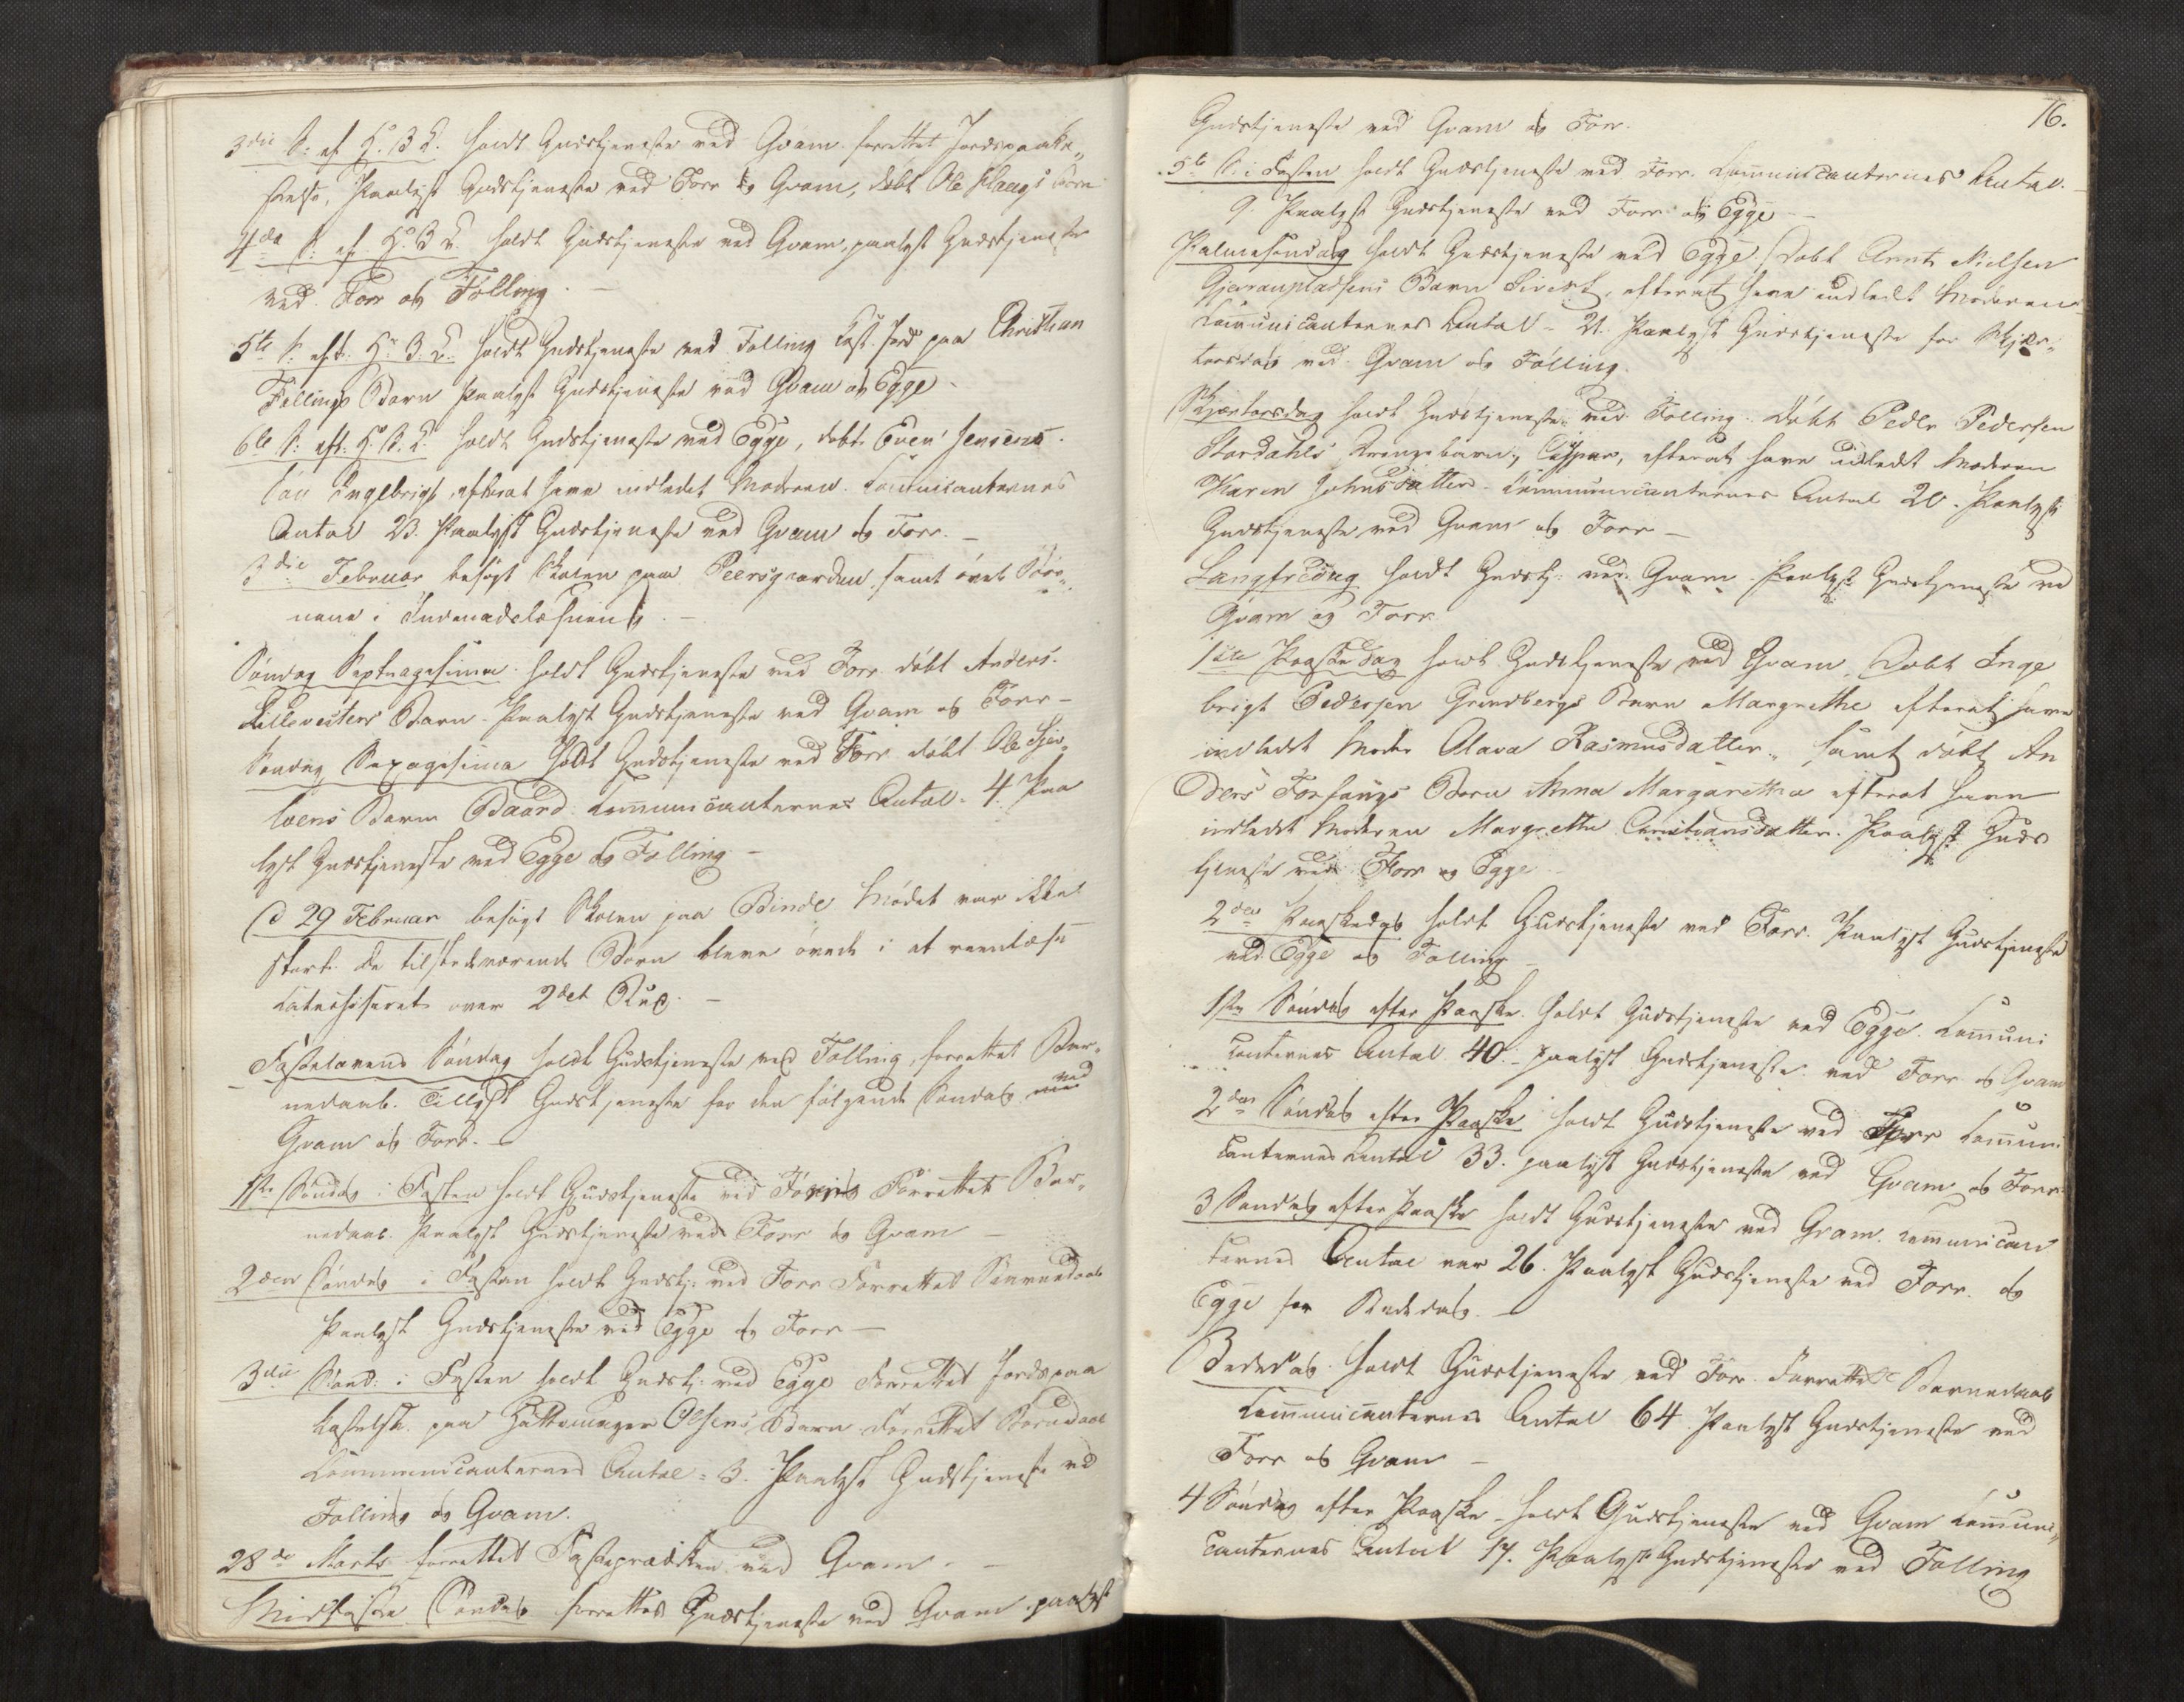 3die S: ef H. 3 K. holdt Gudstjeneste ved Qvam forrettet Jordspaaka„
stelse, Paalyst Gudstjeneste ved Forr og Qvam, døbt Ole Klaugs Børn
4da S: ef. H. 3 K. holdt Gudstjeneste ved Qvam, paalyst Gudstjeneste
ved Forr og Følling. –
5te S. eft. H. 3. K. holdt Gudstjeneste ved Følling Kast. Jord paa Christian
Føllings Barn Paalyst Gudstjeneste ved Qvam og Egge –
6te S: eft: H. 3. K. holdt Gudstjeneste ved Egge, døbt Even Jensens
Søn Ingebrigt, efterat have indledet Moderen. Communicanternes
Antal 23. Paalyst Gudstjeneste ved Qvam og Forr. –
3die Februar besøgt Skolen paa Peersgaarden, samt øvet Bør„
nene i Indenadslæsning. –
Søndag Septuagesima holdt Gudstjeneste ved Forr døbt Anders
Lillevesters Barn – Paalyst Gudstjeneste ved Qvam og Forr –
Søndag Sexagesima holdt Gudstjeneste ved Forr døbt Ole
Barn Baard Communicanternes Antal = 4. Paa
lyst Gudstjeneste ved Egge og Følling –
d 29 Februar besøgt Skolen paa Binde Mødet var ikke
stort. De tilstedeværende Børn bleve øvede i at reenlæse
Catechiseret over 2det Bud. –
Fastelavens Søndag holdt Gudstjeneste ved Følling, forrettet Bar„
nedaab. Tillyst Gudstjeneste for den følgende Søndag ved
Qvam og Forr. –
1ste Søndag i Fasten holdt Gudstjeneste ved Følling Forrettet Bar„
nedaab. Paalyst Gudstjeneste ved Forr og Qvam –
2den Søndag i Fasten holdt Gudstj: ved Forr Forrettet Barnedaab
Paalyst Gudstjeneste ved Egge og Forr –
3die Sønd: i Fasten holdt Gudstj: ved Egge Forrettet Jordspaa
kastelse paa Olsens Barn Forrettet Barnedaab
Communicanternes Antal = 3. Paalyst Gudstjeneste ved
Følling og Qvam.
28de Marts forrettet Fasteprædiken ved Qvam. –
Midfaste Søndag forrettet Gudstjeneste ved Qvam paalyst
76.
Gudstjeneste ved Qvam og Forr.
5te S. i Fasten holdt Gudstjeneste ved Forr. Communicanternes Antal.
9. Paalyst Gudstjeneste ved Forr og Egge –
Palmesøndag holdt Gudstjeneste ved Egge. Døbt Arnt Nielsen
Barn Sivert, efterat have indledt Moderen
Communicanternes Antal = 21. Paalyst Gudstjeneste for Skjær„
torsdag ved Qvam og Følling.
Skjærtorsdag holdt Gudstjeneste ved Følling. Døbt Peder Pedersen
Stordahls Drengebarn, Casper, efterat have indledt Moderen
Karen Johnsdatter – Communicanternes Antal 20. Paalyst
Gudstjeneste ved Qvam og Forr –
Langfredag holdt Gudstj: ved Qvam. Paalyst Gudstjeneste ved
Qvam og Forr
1ste Paaskedag holdt Gudstjeneste ved Qvam. Døbt Inge
brigt Pedersen Grindbergs Barn Margrethe efterat have
indledt Moder Olava Rasmusdatter, samt døbt An
ders Forfangs Barn Anna Margaretha efterat have
indledt Moderen Margrethe Christiansdatter. Paalyst Guds
tjeneste ved Forr og Egge
2den Paaskedag holdt Gudstjeneste ved Forr. Paalyst Gudstjeneste
ved Egge og Følling –
1ste Søndag efter Paaske. Holdt Gudstjeneste ved Egge. Communi
canternes Antal 40. – paalyst Gudstjeneste ved Forr og Qvam
2den Søndag efter Paaske holdt Gudstjeneste ved Forr Communi
canternes Antal 33. paalyst Gudstjeneste ved Qvam og Forr
3 Søndag efter Paaske holdt Gudstjeneste ved Qvam. Communican
ternes Antal var 26. Paalyst Gudstjeneste ved Forr. og
Egge for Bededag. –
Bededag. holdt Gudstjeneste ved Forr. Forrettet Barnedaab
Communicanternes Antal 64 Paalyst Gudstjeneste ved
Forr og Qvam –
4 Søndag efter Paaske – holdt Gudstjeneste ved Qvam Communi„
canternes Antal 17. Paalyst Gudstjeneste ved Følling